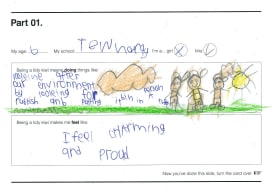 Part 01.
My age: 6 My school: I'm a... girl boy
Being a tidy kiwi means doing things like:
looking after
our environment
by looking for
rubbish and putting it in rubbish
Being a tidy kiwi makes me feel like:
I feel charming
and proud
Now you've done this side, turn the card over